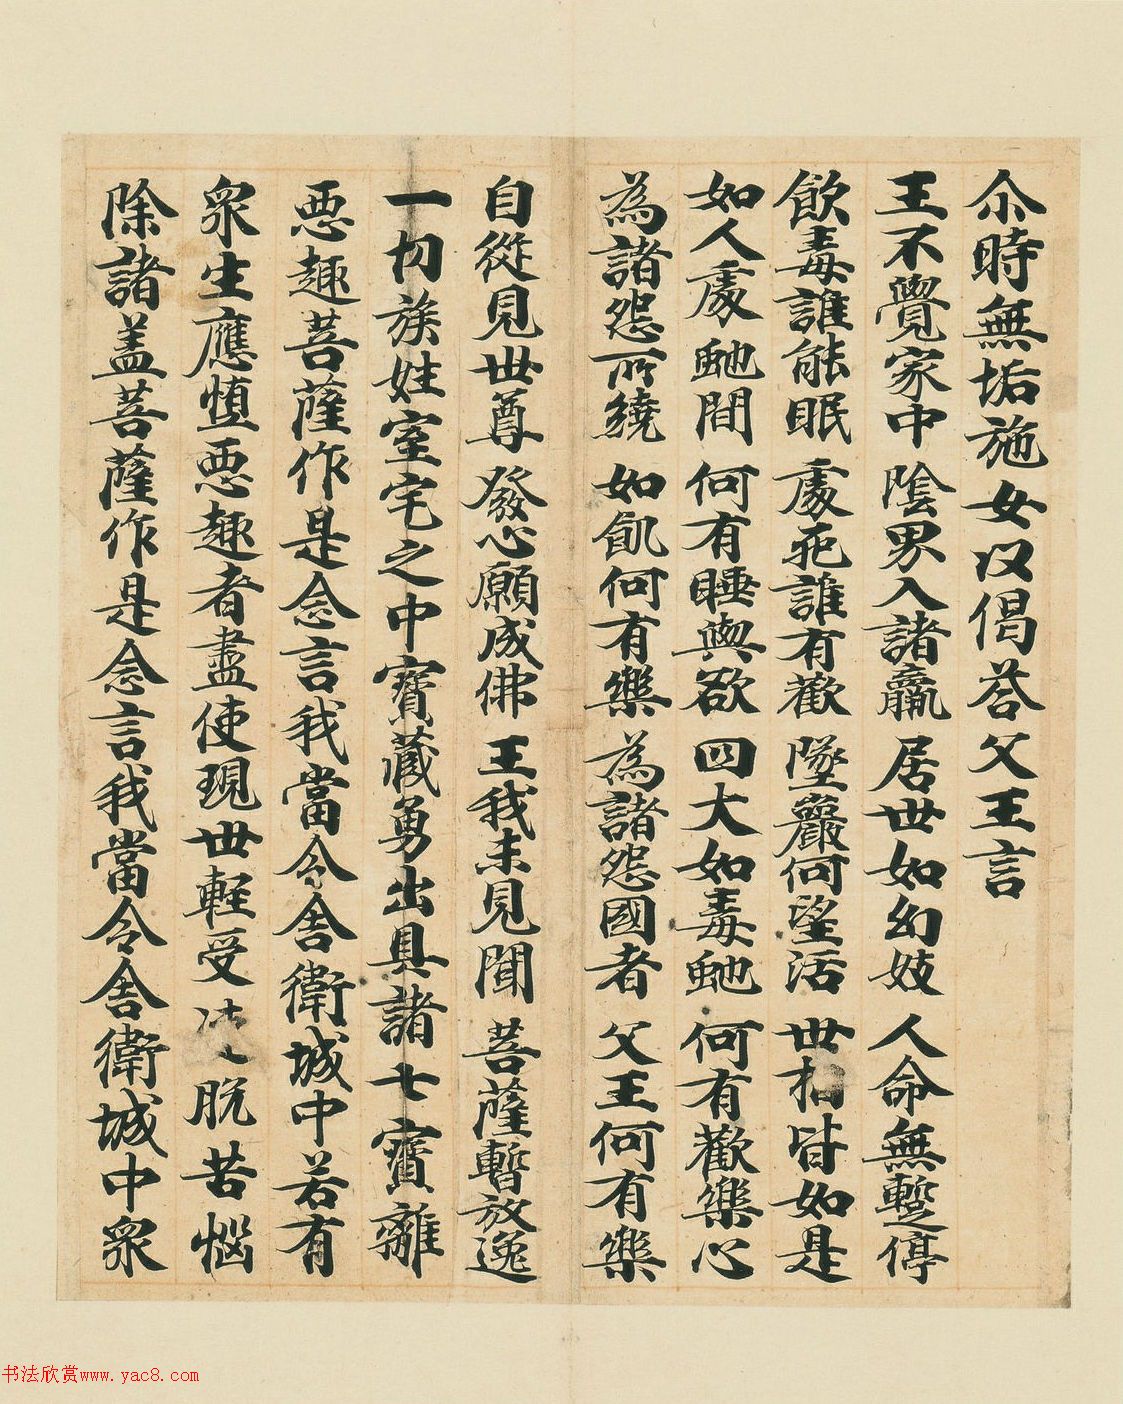 尒時無垢施女以偈荅父王言
王不覺家中 陰界入諸羸 居世如幻妓 人命無蹔停
飲毒誰能眠 處死誰有歡 墜巖何望活 世相皆如是
如人處虵間 何有睡與欲 四大如毒虵 何有歡樂心
為諸怨所繞 如飢何有樂 為諸怨國者 父王何有樂
自從見世尊 發心願成佛 王我未見聞 菩薩暫放逸
一切族姓室宅之中寶藏勇出具諸七寶離
惡趣菩薩作是念言我當令舍衛城中若有
眾生應慎惡趣者盡使現世輕受 脫苦惱
除諸盖菩薩作是念言我當令舍衛城中眾
书法欣赏www.yac8.com